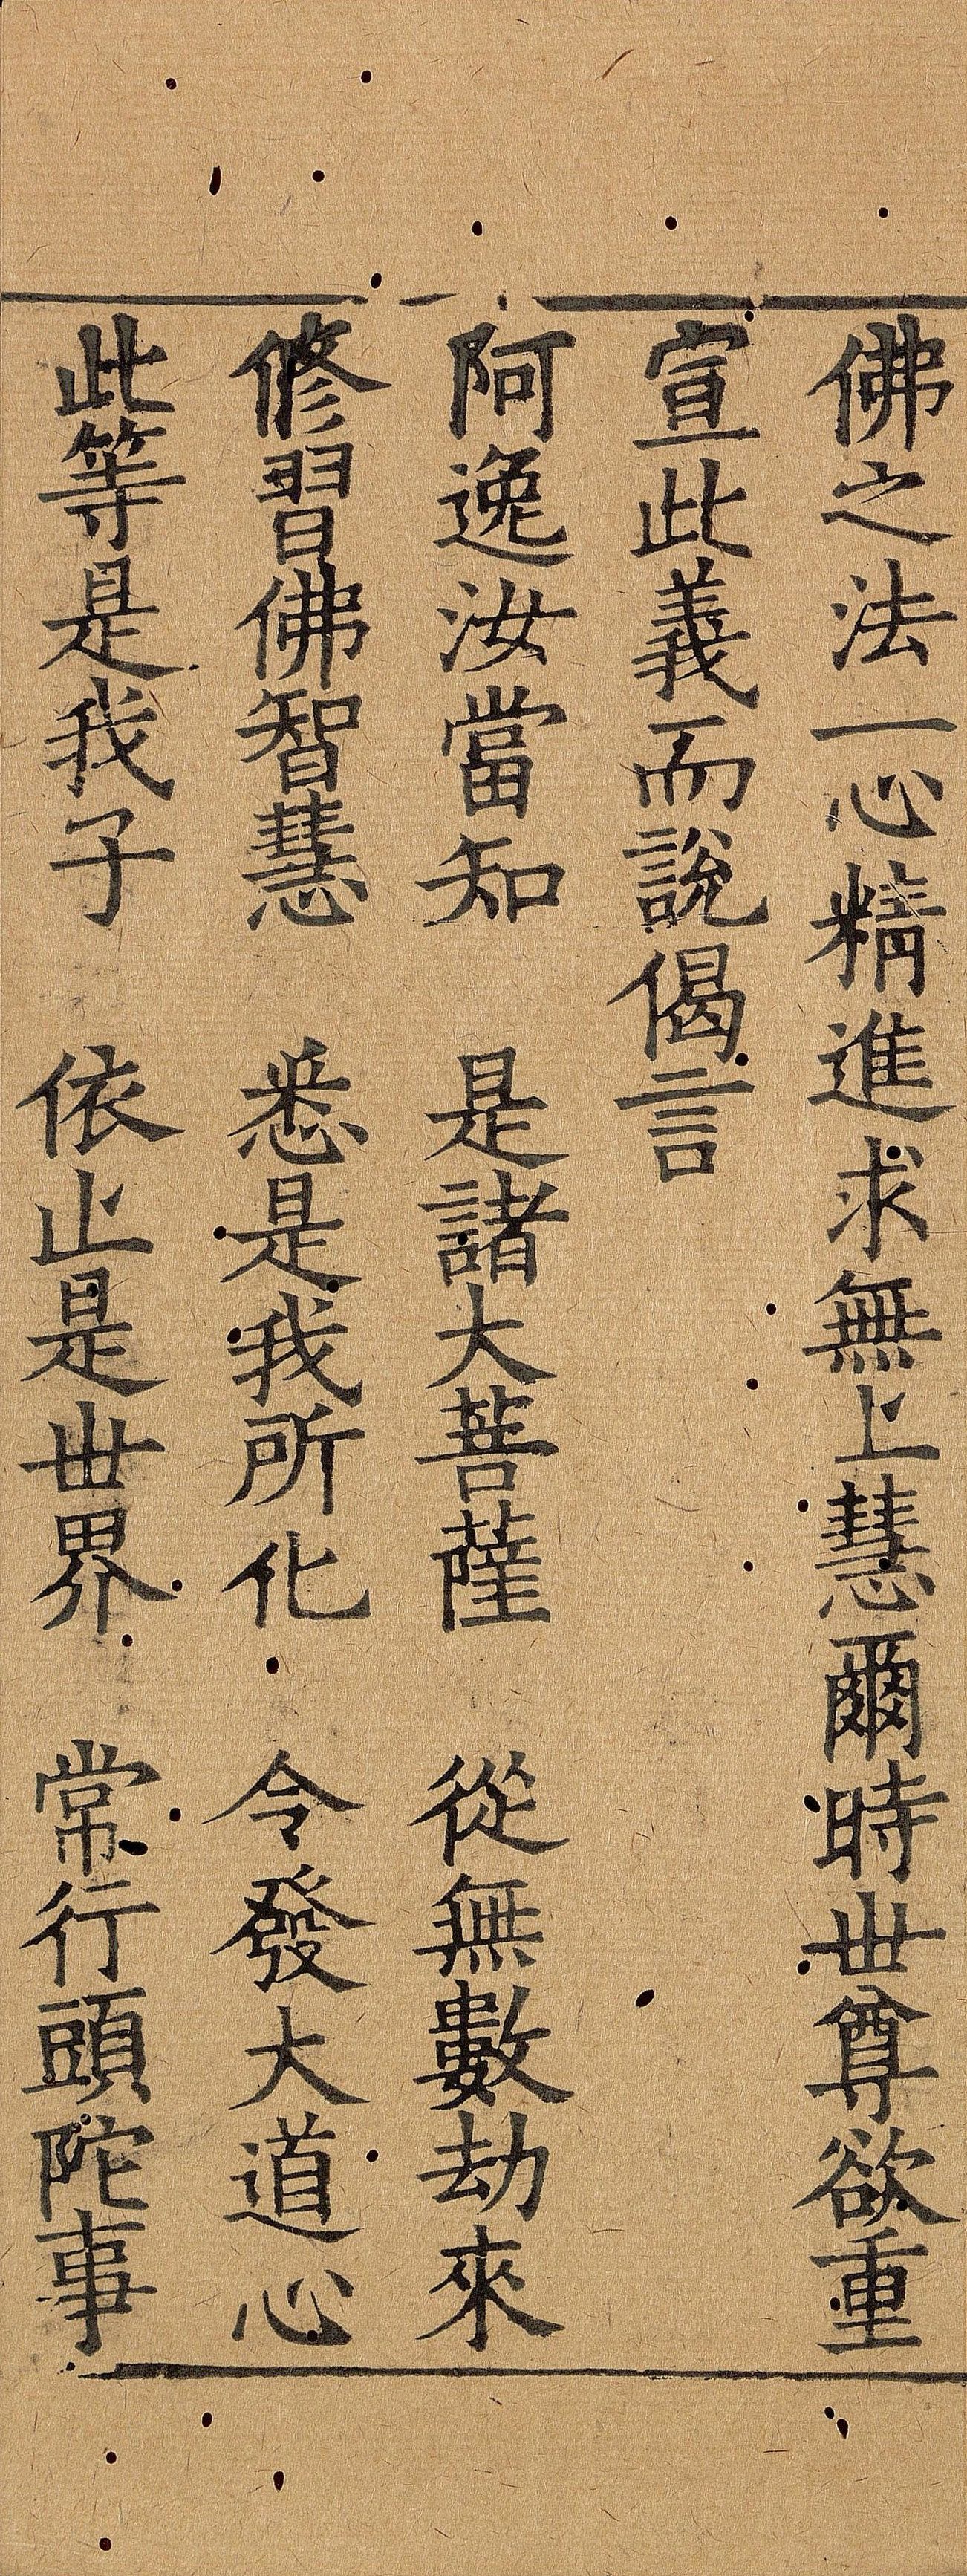 佛之法一心精進求無上慧爾時世尊欲重
宣此義而說偈言
阿逸汝當知　是諸大菩薩　從無數劫來
修習佛智慧　悉是我所化　令發大道心
此等是我子　依止是世界　常行頭陀事